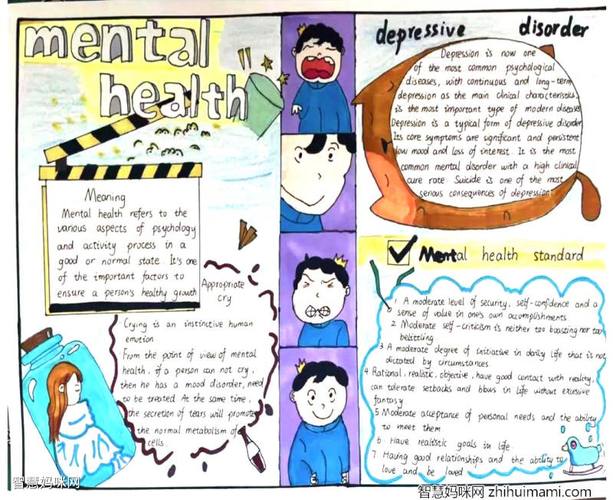 mental
health
Meaning
Mental health refers to the
various aspects of psychology
and activity process in a
good or normal state It's one
of the important factors to
ensure a person's healthy growth
Appropriate
cry
Crying is an instinctive human
emotion
From the point of view of mental
health, if a person can not cry,
then he has a mood disorder, need
to be treated At the same time,
the secretion of tears will promote
the normal metabolism of
cells
depressive disorder
Depression is now one
of the most common psychological
diseases, with continuous and long-term
depression as the main clinical characteristics,
is the most important type of modern disease
Depression is a typical form of depressive disorder
Its core symptoms are significant and persistent
low mood and loss of interest. It is the most
common mental disorder with a high clinical
cure rate Suicide is one of the most
serious consequences of depression
Mental health standard
1 A moderate level of security, self-confidence and a
sense of value in one's own accomplishments
2 Moderate self-criticism is neither too boasting nor too
belittling
3 A moderate degree of initiative in daily life that is not
dictated by circumstances
4 Rational, realistic, objective, have good contact with reality,
can tolerate setbacks and blows in life without excessive
fantasy
5 Moderate acceptance of personal needs and the ability
to meet them
6 Have realistic goals in life
7. Having good relationships and the ability to
love and be loved
智慧妈咪网
智慧妈咪网 zhihuimami.com